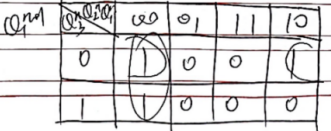 Q₁ⁿ⁺¹ Q₃ⁿ Q₂ⁿQ₁ⁿ 00 01 11 10
0 1 0 0 1
1 1 0 0 0